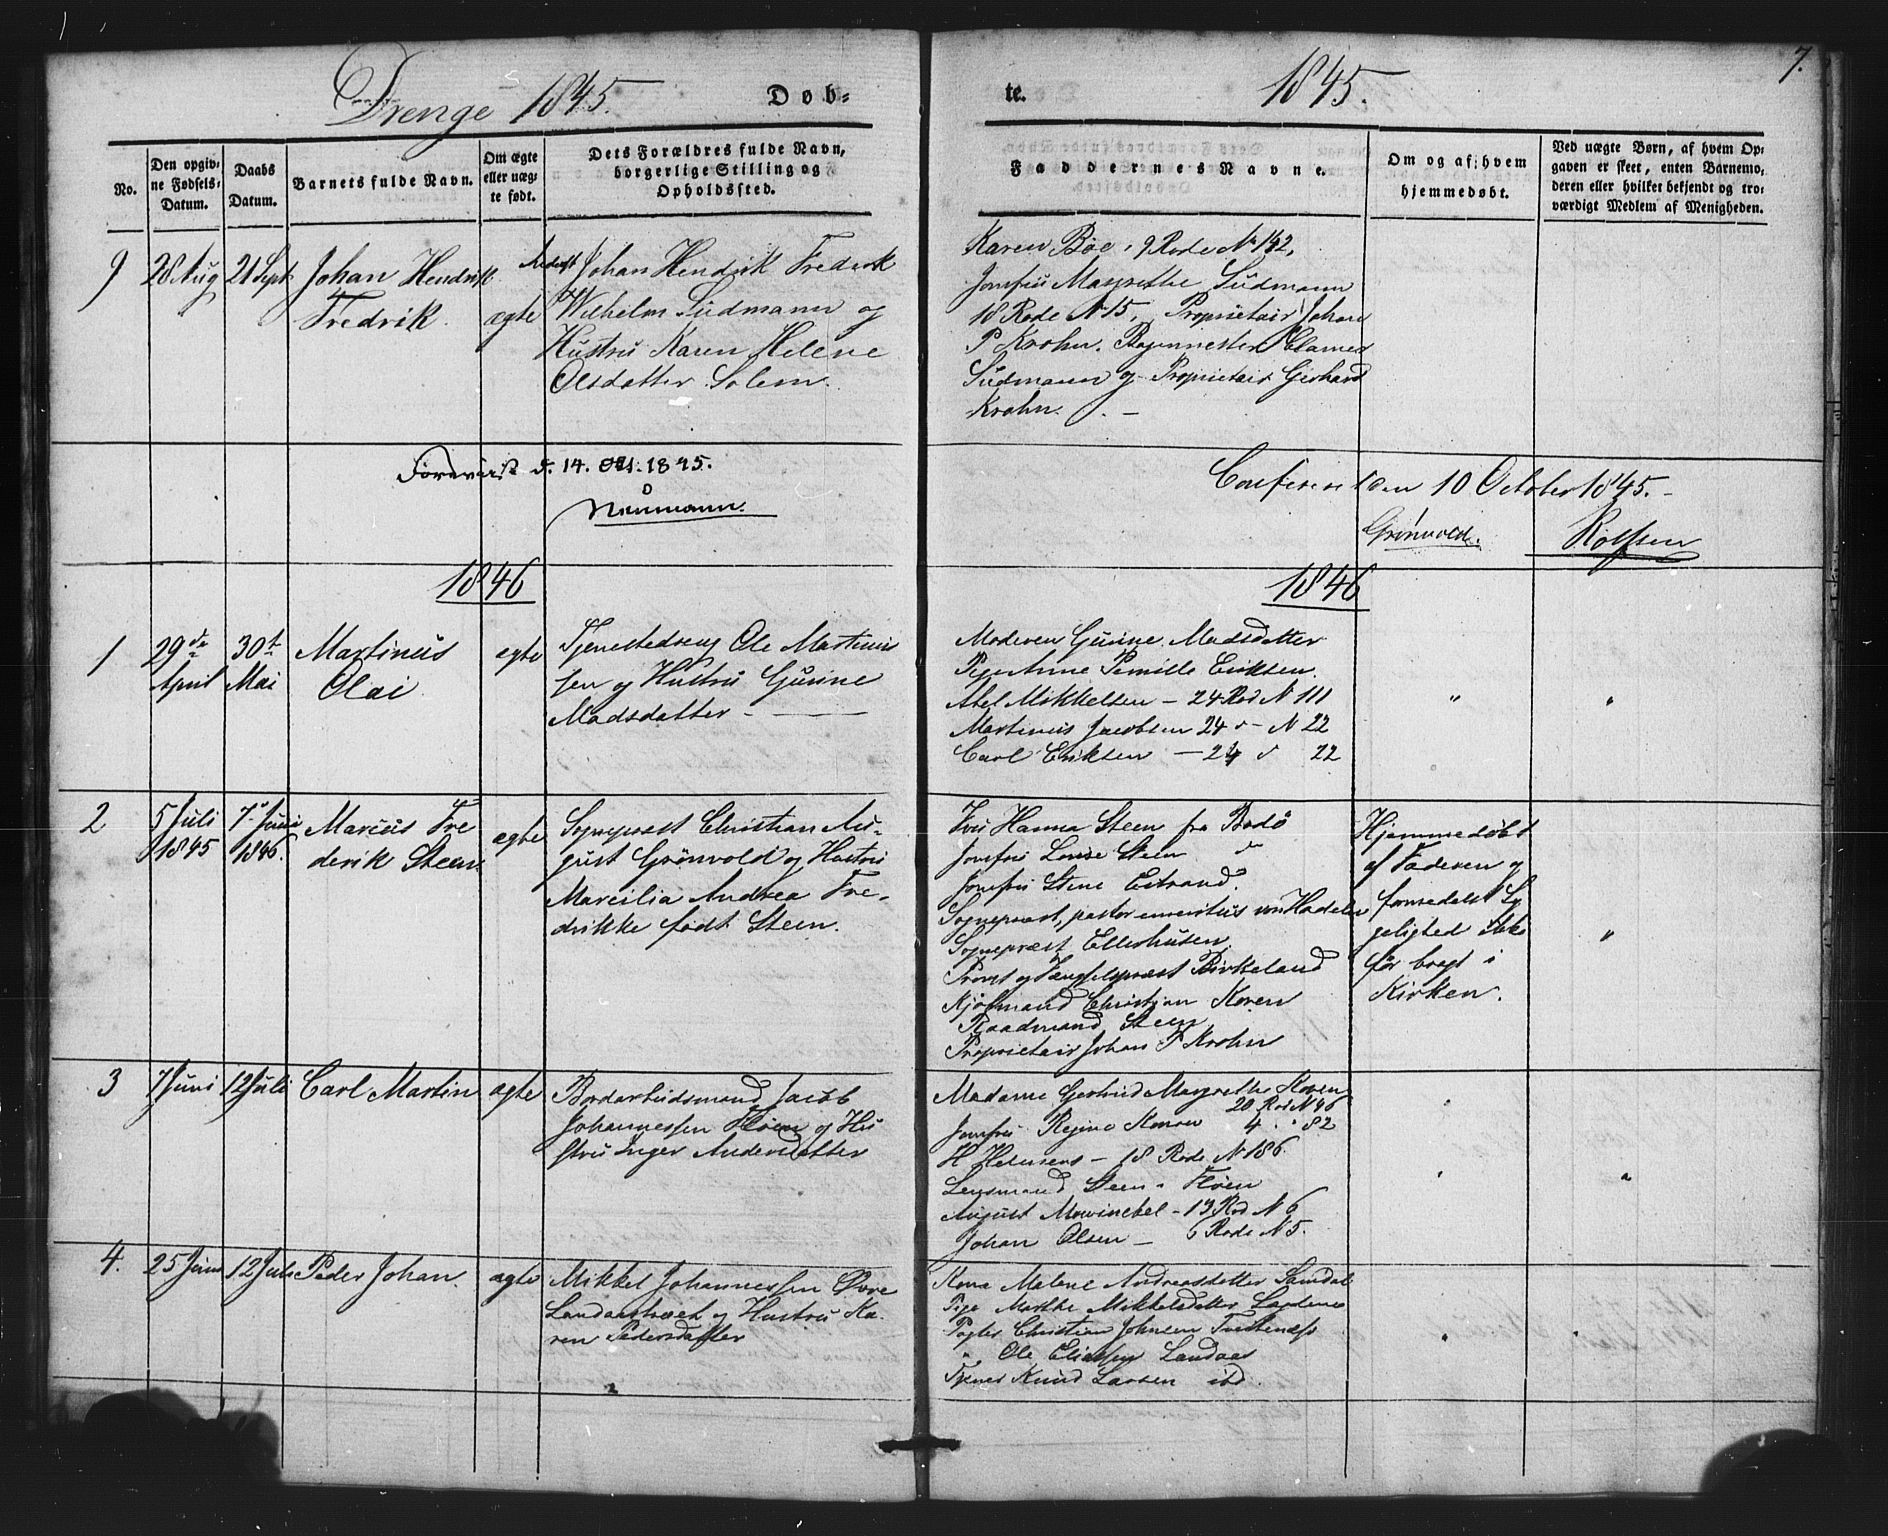 Drenge 1845.
Døb=
te.
1845.
7.
No.
Den opgiv=
ne Fødsels=
Datum.
Daabs
Datum.
Barnets fulde Navn.
Om ægte
eller uæg=
te født.
Dets Forældres fulde Navn,
borgerlige Stilling og
Opholdssted.
Faddernes Navne.
Om og af hvem
hjemmedøbt.
Ved uægte Børn, af hvem Op=
gaven er skeet, enten Barnemo=
deren eller hvilket bekjendt og tro=
værdigt Medlem af Menigheden.
9
28 Aug
21 Sept
Johan Hendrik
Fredrik.
ægte
Johan Hendrik Fredrik
Wilhelm Südmann og
Hustru Karen Helene
Olsdatter Solem.
Karen Bøe, 9 Rode No 142,
Jomfru Margrethe Südmann
18 Rode N 15, Proprietair Johan
P Krohn.
Südmann og Proprietair Gerhard
Krohn. -
d. 14. Oct. 1845.
Neumann.
Confereret den 10 October 1845. -
Grönvold.
Rolfsen
1846
1846
1
29de
April
30t
Mai
Martinus
Olai
egte
Tjenestedreng Ole Martinus
sen og Hustru Gurine
Madsdatter -
Moderen Gurine Madsdatter
Pige Anne Pernille Eriksen
Abel Mikkelsen - 24 Rod N 111
Martinus Jacobsen 24 d - N 22
Carl Eriksen - 24 d 22
"
"
2
5 Juli
1845
7de Juni
1846.
Marcus Fre
derik Steen.
ægte
Sognepræst Christian Au-
gust Grönvold og Hustru
Marcilia Andrea Fre-
drikke født Steen.
Fru Hanna Steen fra Bodö
Jomfru Lovise Steen d
Jomfru Stene
Sognepræst, pastor emeritus von Hadeln
Sognepræst Ellerhusen
Provst og Fængselspræst Birkeland
Kjøbmand Christian Koren
Raadmand Steen
Proprietair Johan P Krohn
Hjemmedøbt
af Faderen og
formedelst Sy
gelighed ikke
før bragt i
Kirken.
"
3
7 Juni
12 Juli
Carl Martin
ægte
Bordarbeidsmand Jacob
Johannessen Fløen og Hu
stru Inger Andersdatter
Madame Gertrud Margrethe Koren
20 Rod N 46
Jomfru Regine Konow 4 " 82
H - 18 Rode N 186.
Lensmand Steen - Fløen
August Mowinckel - 13 Rod N 6
Johan Olsen - 6 Rode N 5.
"
4.
25 Juni
12 Juli
Peder Johan.
ægte
Mikkel Johannessen Øvre
Landaastræet og Hustru Ka-
ren Pedersdatter
Kona Malene Andreasdatter
Pige Marthe Mikkelsdatter
Christian Johnsen
" Ole Eliassen Landaas
Knud Larsen ibd.
"